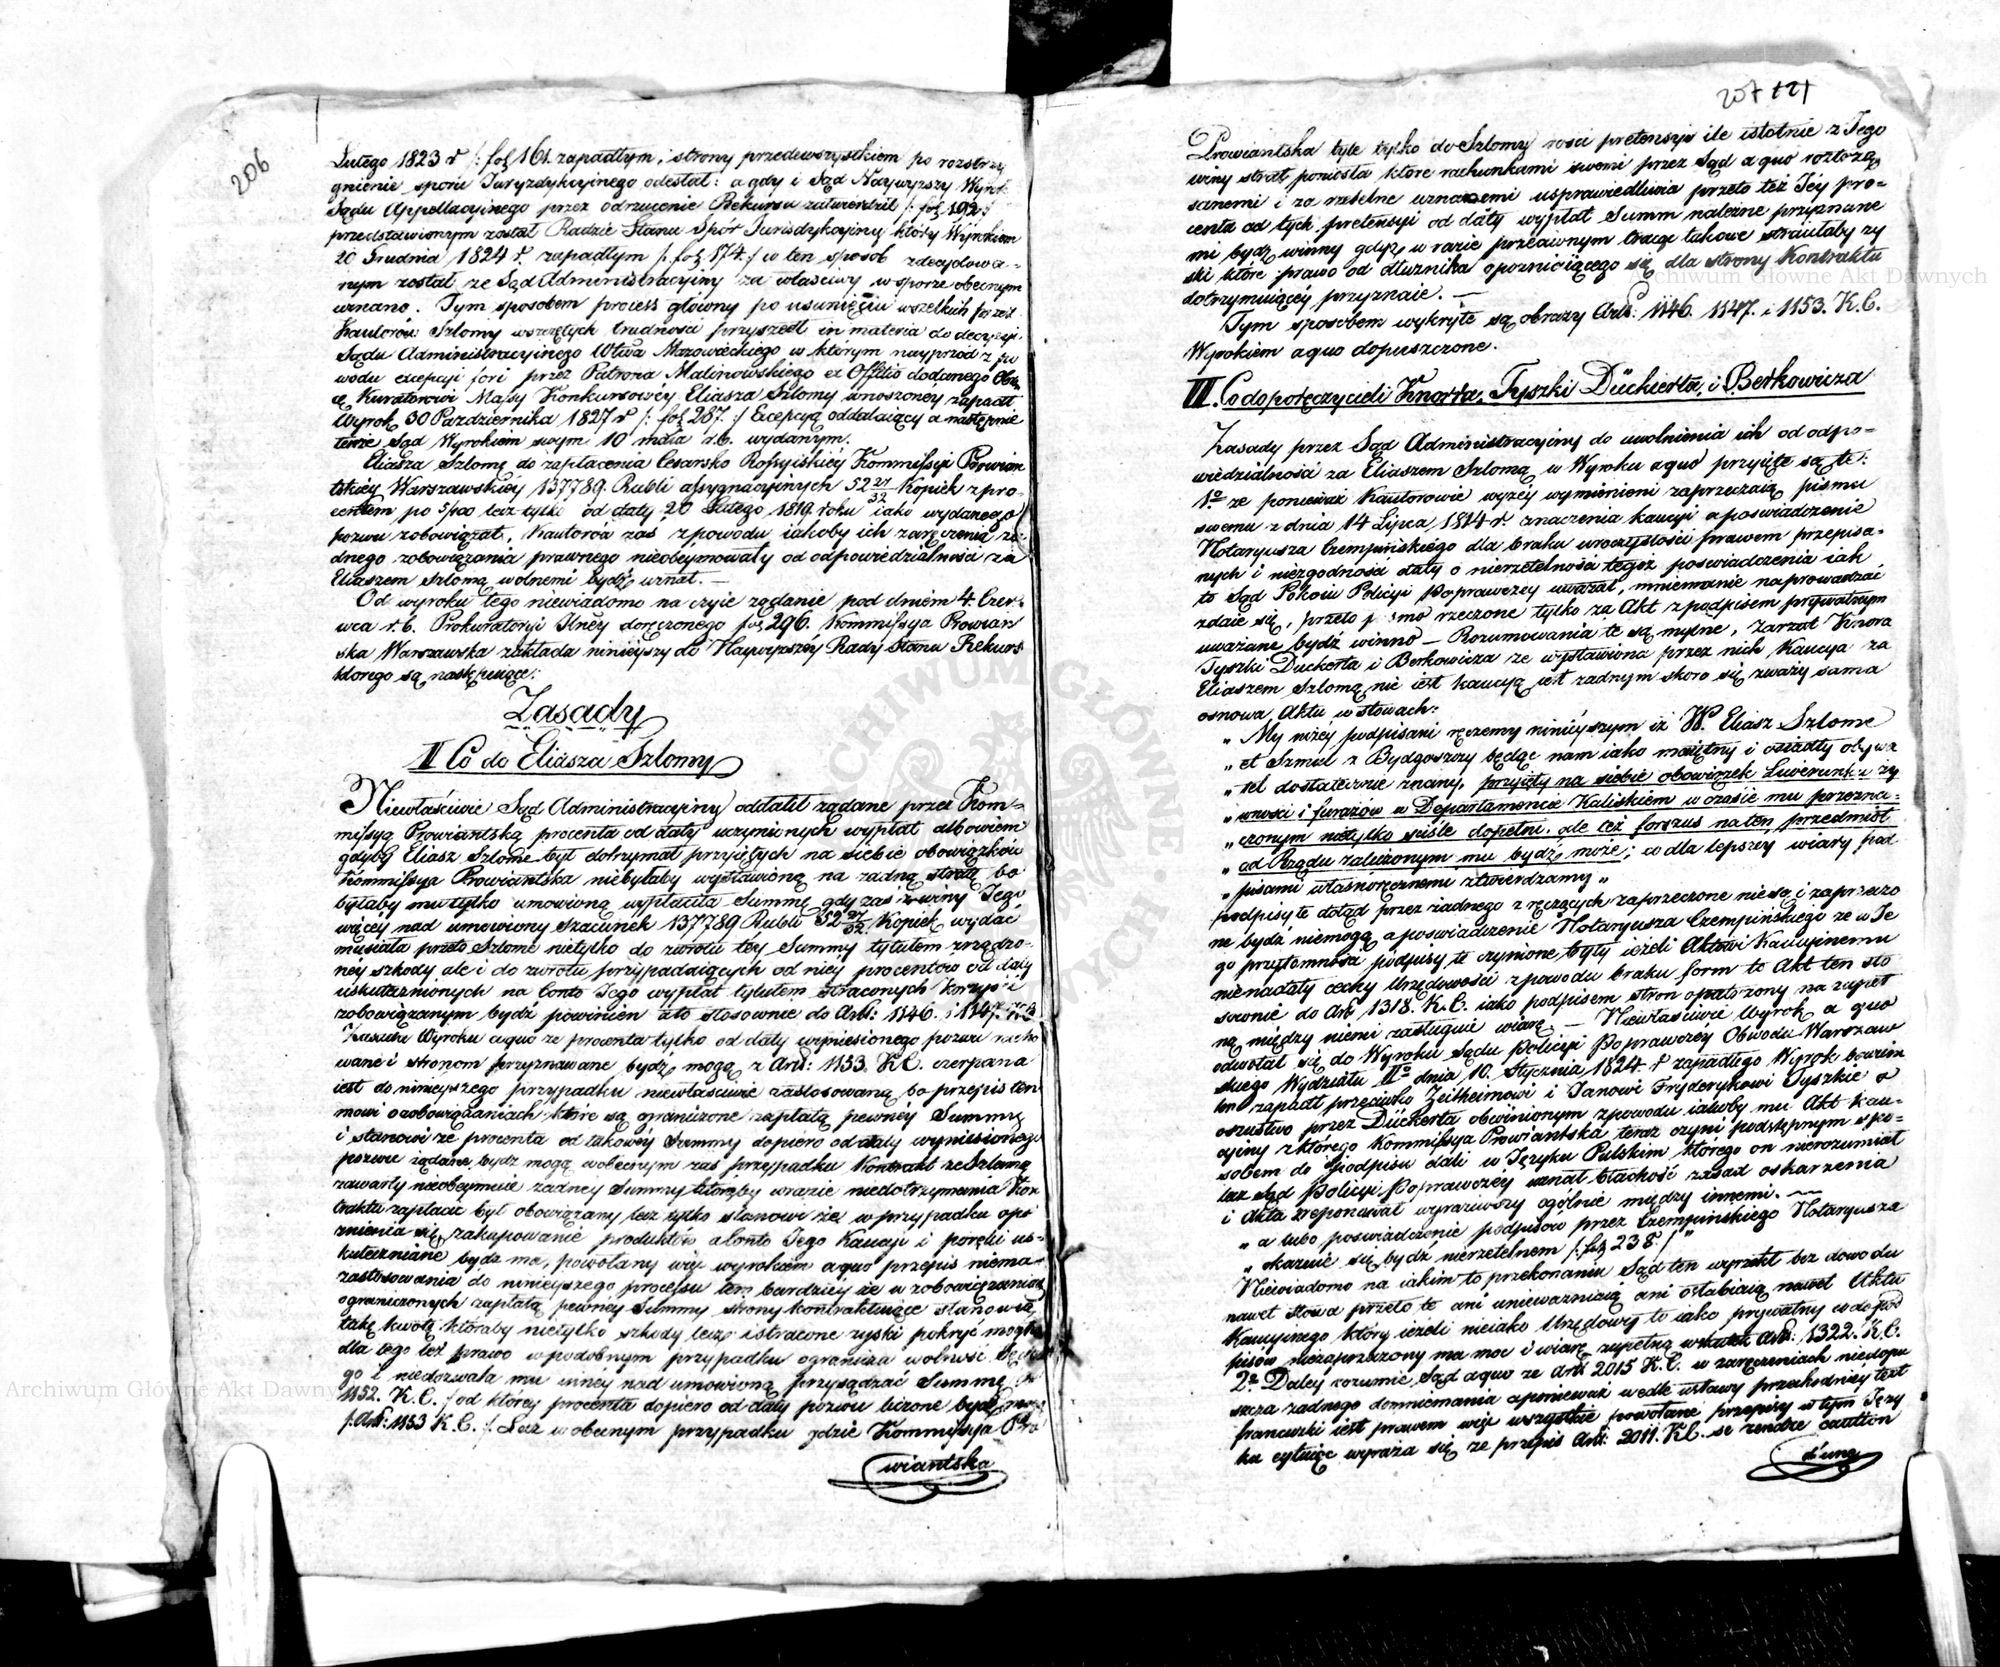 206
Lutego 1823 r /: fol 161. zapadłym, strony przedewszystkiem po rozstrzy
gnienie sporu Juryzdykcyinego odesłał: a gdy i Sąd Naywyższy Wyrok
Sądu Appellacyinego przez odrzucenie Rekursu zatwierdził /: fol 192 :/
przedstawionym został Radzie Stanu Spór Jurisdykcyiny który Wyrokiem
20 Grudnia 1824 r. zapadłym /: fol 174 :/ w ten sposob zdecydowa-
nym został ze Sąd Administracyiny za właściwy w sporze obecnym
uznano. Tym sposobem process główny po usunięciu wszelkich przez
Kautorów Szlomy wszczętych trudnosci przyszedł in materia do decyzyi
Sądu Administracyinego Wtwa Mazowieckiego w którym nayprzód z po
wodu excepcyi fori przez Patrona Malinowskiego ex Officio dodanego Obro
cę Kuratorowi Massy Konkursowéy Eliasza Szlomy wnoszoney zapadł
Wyrok 30 Pazdziernika 1827 r /: fol 287. :/ Excepcyą oddalaiący a następnie
tenże Sąd Wyrokiem swym 10 maia r.b. wydanym.
Eliasza Szlomę do zapłacenia Cesarsko Rossyiskiéy Kommissyi Prowian
tskiéy Warszawskiéy 137789 Rubli assygnacyinych 52 27/32 Kopiek z pro-
centem po 5/100 lecz tylko od daty 20 Lutego 1819 roku iako wydanego
pozwu zobowiązał, Kautorów zas z powodu iakoby ich zaręczenia ża-
dnego zobowiązania prawnego nieobeymowały od odpowiedzialnosci za
Eliaszem Szlomą wolnemi bydź uznał. —
Od wyroku tego niewiadomo na czyie żądanie pod dniem 4. Czer-
wca r.b. Prokuratoryi Jlnéy doręczonego fol 296. Kommissya Prowiant
ska Warszawska zakłada ninieyszy do Naywyższéy Rady Stanu Rekurs
ktorego są następuiące:
Zasady
II Co do Eliasza Szlomy
Niewłaściwie Sąd Administracyiny oddalił żądane przez Kom-
missyą Prowiantską procenta od daty uczynionych wypłat albowiem
gdyby Eliasz Szlome był dotrzymał przyiętych na siebie obowiązków
Kommissya Prowiantska niebyłaby wystawioną na żadną stratę bo
byłaby mu tylko umowioną wypłaciła Summę gdy zas z winy Jego
więcéy nad umowiony Szacunek 137789 Rubli 52 27/32 Kopiek wydać
musiała przeto Szlome nietylko do zwrotu téy Summy tytułem zrządzo-
néy szkody ale i do zwrotu przypadaiących od niéy procentów od daty
uskutecznionych na Conto Jego wypłat tytułem straconych korzysci
zobowiązanym bydź powinien a to stosownie do Art: 1146. i 1147. K.C.
Zasada Wyroku a quo ze procenta tylko od daty wyniesionego pozwu racho
wane i stronom przyznawane bydź mogą z Art: 1153. K.C. czerpana
iest do ninieyszego przypadku niewłaściwie zastosowaną bo przepis ten
mowi o zobowiązaniach które są graniczone zapłatą pewnéy Summy
i stanowi ze procenta od takowéy Summy dopiero od daty wyniesionego
pozwu żądane bydź mogą w obecnym zaś przypadku Kontrakt ze Szlomą
zawarty nieobeymuie żadney Summy któraby w razie niedotrzymania Kon
traktu zapłacić był obowiązany lecz tylko stanowi że w przypadku opo
znienia się zakupowanie produktów a Conto Jego Kaucyi i poręki us-
kuteczniane bydź ma, powołany więc wyrokiem a quo przepis niema
zastosowania do ninieyszego processu tem bardziéy że w zobowiązaniach
ograniczonych zapłatą pewney Summy strony kontraktuiące stanowią
takę kwotę któraby nietylko szkody lecz i stracone zyski pokryć mogła
dla tego też prawo w podobnym przypadku ogranicza wolność
go i niedozwala mu inney nad umowioną przysądzać Summę
1152. K.C. / od któréy procenta dopiero od daty pozwu liczone bydź mogą
/: Art: 1153 K.C. /: Lecz w obecnym przypadku gdzie Kommissya Pro
wiantska
207 121
Prowiantska tyle tylko do Szlomy rosci pretensyi ile istotnie z Jego
winy strat poniosła które rachunkami swemi przez Sąd a quo roztrzą
sanemi i za rzetelne uznanemi usprawiedliwia przeto też Jéy pro-
centa od tych pretensyi od daty wypłat Summ należne przyznane
mi bydź winny gdyż w razie przeciwnym tracąc takowe straciłaby zy
ski które prawo od dłużnika opozniaiącego się dla strony Kontraktu
dotrzymuiącéy przyznaie. —
Tym sposobem wykryte są obrazy Art: 1146. 1147. i 1153. K.C.
Wyrokiem a quo dopuszczone.
III. Co do poręczycieli Knorra, Tyszki Dückerta, i Berkowicza
Zasady przez Sąd Administracyiny do uwolnienia ich od odpo-
wiedzialności za Eliaszem Szlomą w Wyroku a quo przyięte są te:
1o ze ponieważ Kautorowie wyżéy wymienieni zaprzeczaią pismu
swemu z dnia 14 Lipca 1814 r. znaczenia kaucyi a poswiadczenie
Notaryusza Czempińskiego dla braku uroczystości prawem przepisa-
nych i niezgodności daty o nierzetelność tegoż poswiadczenia iak
to Sąd Pokoiu Policyi Poprawczey uważał, mniemanie naprowadzać
zdaie się, przeto pismo rzeczone tylko za Akt z podpisem prywatnym
uważane bydź winno — Rozumowania te są mylne, Zarzut Knora
Tyszki Duckerta i Berkowicza ze wystawiona przez nich Kaucya za
Eliaszem Szlomą nie iest kaucyą iest żadnym skoro się zważy sama
osnowa Aktu w słowach:
„ My niżéy podpisani ręczemy ninieyszym iż W. Eliasz Szlome
„ et Szmul z Bydgoszczy będąc nam iako maiętny i osiadły obywa
„ tel dostatecznie znany, przyięty na siebie obowiązek Liwerunku ży
„ wności i furażów w Departamencie Kaliskiem w czasie mu przezna-
„ czonym nietylko ściśle dopełni, ale też forszus na ten przedmiot
„ od Rządu zaliczonym mu bydź może; co dla lepszey wiary pod
„ pisami własnoręcznemi ztwierdzamy „
podpisy te dotąd przez żadnego z ręczących zaprzeczone nie są i zaprzeczo
ne bydź niemogą a poswiadczenie Notaryusza Czempińskiego ze w Je
go przytomnosci podpisy te czynione były ieżeli Aktowi Kaucyinemu
nie nadały cechy Urzędowości z powodu braku form to Akt ten sto
sownie do Art 1318. K.C. iako podpisem stron opatrzony na zupeł
ną między niemi zasługuie wiarę — Niewłaściwie Wyrok a quo
odwołał się do Wyroku Sądu Policyi Poprawczéy Obwodu Warszaw
skiego Wydziału IIo dnia 10. Stycznia 1824 r zapadłego Wyrok bowiem
ten zapadł przeciwko Zeitheimowi i Janowi Fryderykowi Tyszkie o
oszustwo przez Dückerta obwinionym z powodu iakoby mu Akt Kau-
cyiny z którego Kommissya Prowiantska teraz czyni podstępnym spo-
sobem do podpisu dali w Języku Polskim którego on nierozumiał
lecz Sąd Policyi Poprawczey uznał błachość zasad oskarzenia
i Akta zreponował wyraziwszy ogólnie między innemi. —
„ a lubo poswiadczenie podpisow przez Czempińskiego Notaryusza
„ okazuie się bydź nierzetelnem /: fol 238 :/ „
Niewiadomo na iakim to przekonaniu Sąd ten wyrzekł bez dowodu
nawet słowa przeto te ani unieważniaią ani osłabiaią nawet Aktu
Kaucyinego który ieżeli nieiako Urzędowy to iako prywatny w dowód
pisów niezaprzeczony ma moc i wiarę zupełną wskutek Art: 1322. K.C.
2o Daley rozumie Sąd a quo ze Art 2015 K.C. w zaręczeniach niedopu
szcza żadnego domniemania a ponieważ wedle ustawy przechodniey text
francuzki iest prawem więc wszystkie powołane przepisy w tym Języ
ku cytuiąc wyraża się ze przepis Art: 2011. K.C. se rendre caution
d'une